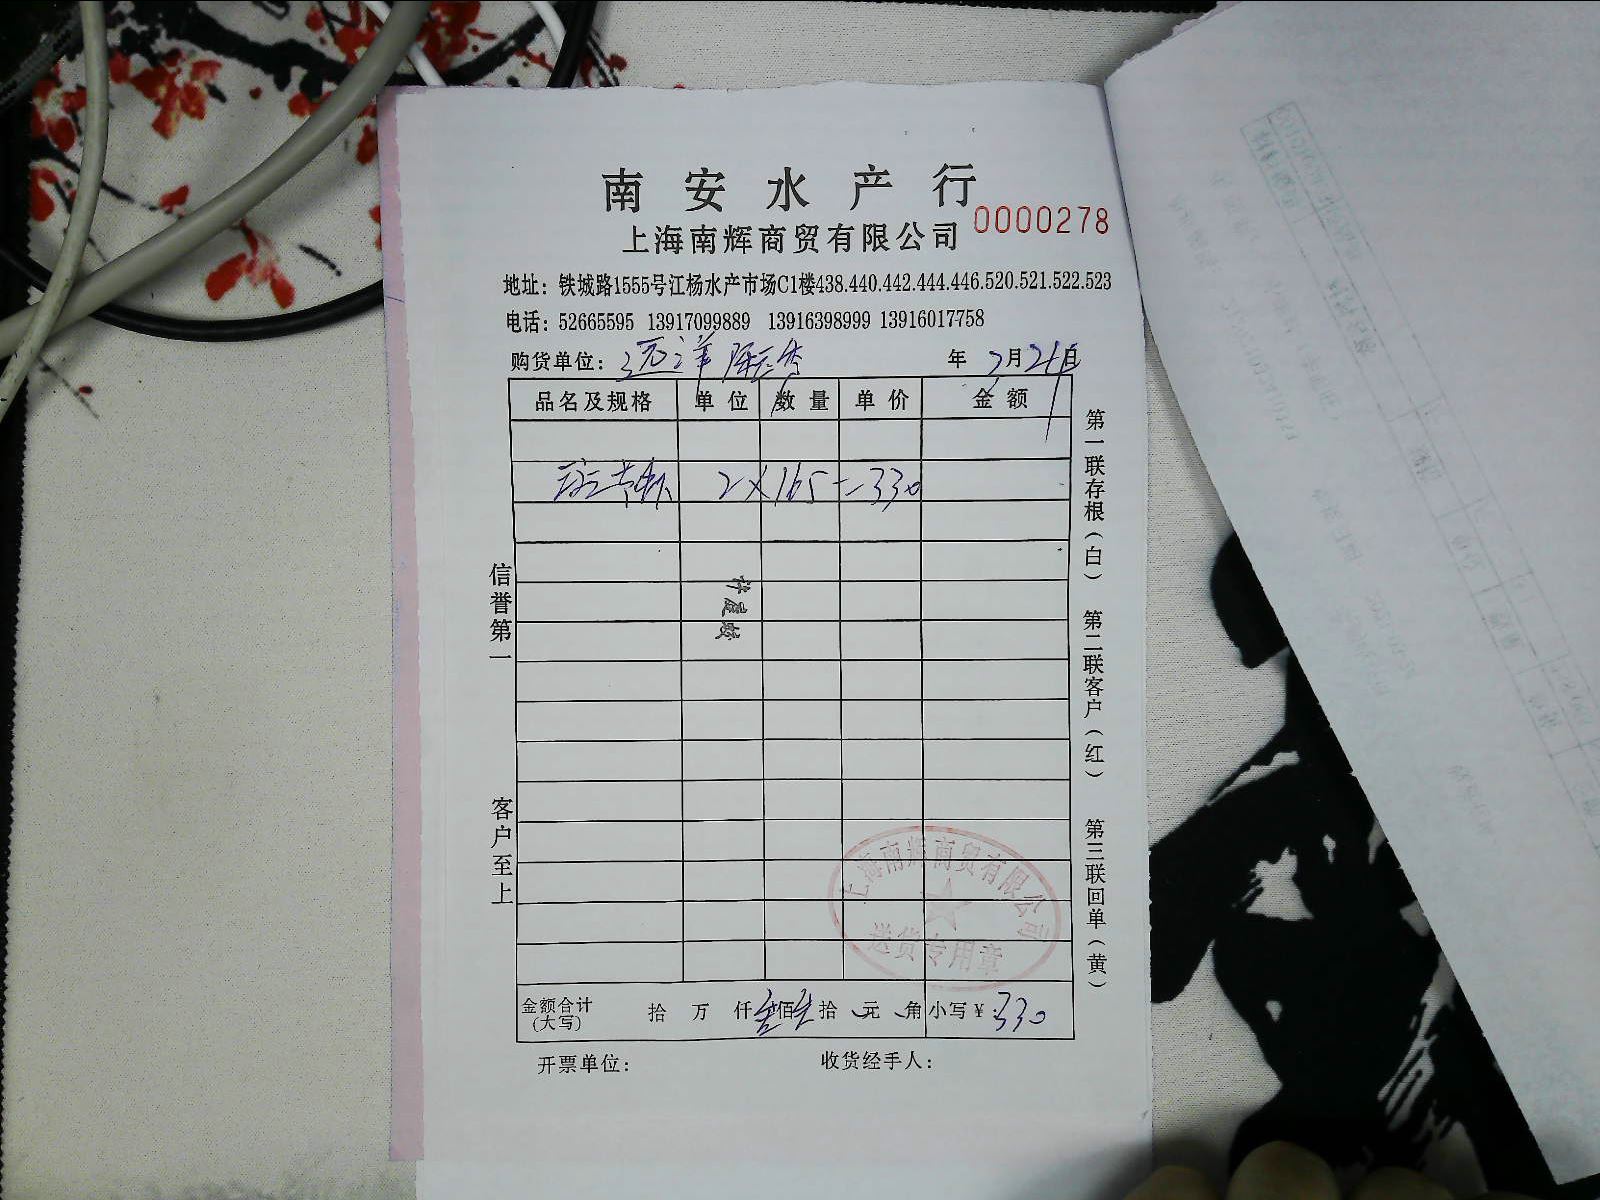 南安水产行
上海南辉商贸有限公司 0000278
地址：铁城路1555号江杨水产市场C1楼438.440.442.444.446.520.521.522.523
电话：52665595 13917099889 13916398999 13916017758
购货单位：远洋 年 月 日
品名及规格 单位 数量 单价 金额
2×165=330
信誉第一
客户至上
第一联存根（白） 第二联客户（红） 第三联回单（黄）
上海南辉商贸有限公司
送货专用章
金额合计（大写） 拾 万 仟叁佰叁拾 元 角 小写￥：330
开票单位： 收货经手人：